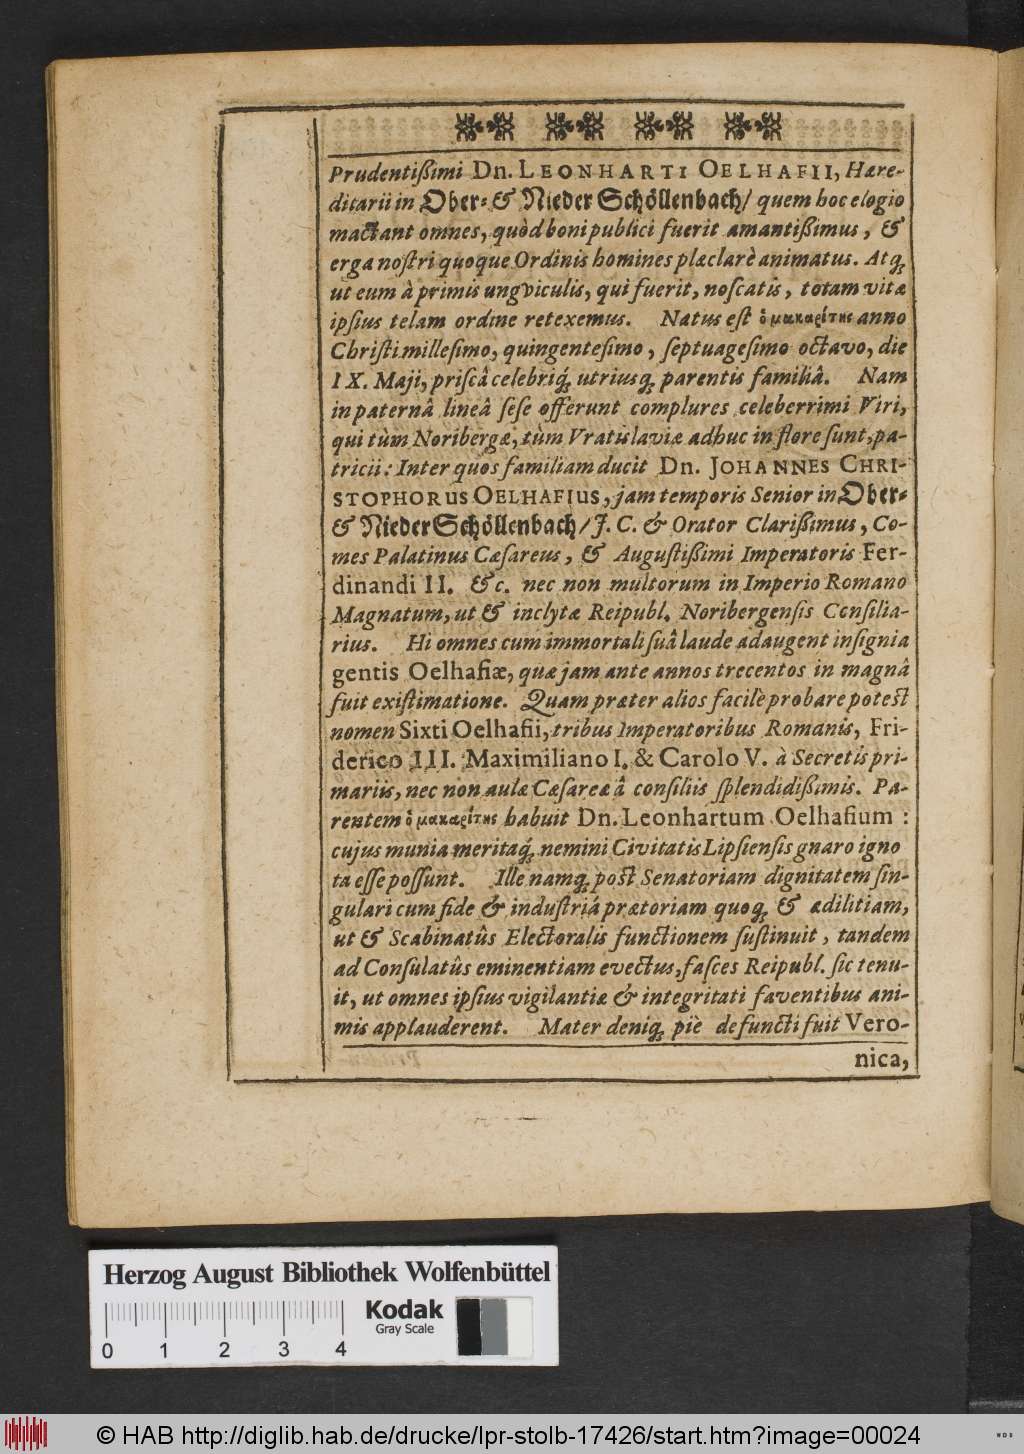 Prudentißimi Dn. LEONHARTI OELHAFII, Hære-
ditarii in Ober- & Nieder Schöllenbach/ quem hoc elogio
mactant omnes, quòd boni publici fuerit amantißimus, &
erga nostri quoque Ordinis homines plæclarè animatus. Atq́;
ut eum à primis ungviculis, qui fuerit, noscatis, totam vitæ
ipsius telam ordine retexemus. Natus est ὁ μακαρίτης anno
Christi millesimo, quingentesimo, septuagesimo octavo, die
IX. Maji, priscâ celebriq́; utriusq́; parentis familiâ. Nam
in paternâ lineâ sese offerunt complures celeberrimi Viri,
qui tùm Noribergæ, tùm Vratislaviæ adhuc in flore sunt, pa-
tricii: Inter quos familiam ducit Dn. JOHANNES CHRI-
STOPHORUS OELHAFIUS, jam temporis Senior in Ober-
& Nieder Schöllenbach/ J. C. & Orator Clarißimus, Co-
mes Palatinus Cæsareus, & Augustißimi Imperatoris Fer-
dinandi II. &c. nec non multorum in Imperio Romano
Magnatum, ut & inclytæ Reipubl. Noribergensis Consilia-
rius. Hi omnes cum immortali suâ laude adaugent insignia
gentis Oelhafiæ, quæ jam ante annos trecentos in magnâ
fuit existimatione. Quam præter alios facilè probare potest
nomen Sixti Oelhafii, tribus Imperatoribus Romanis, Fri-
derico III. Maximiliano I. & Carolo V. à Secretis pri-
mariis, nec non aulæ Cæsareæ â consiliis splendidißimis. Pa-
rentem ὁ μακαρίτης habuit Dn. Leonhartum Oelhafium:
cujus munia meritaq́; nemini Civitatis Lipsiensis gnaro igno
ta esse possunt. Ille namq́; post Senatoriam dignitatem sin-
gulari cum fide & industriá prætoriam quoq́; & ædilitiam,
ut & Scabinatûs Electoralis functionem sustinuit, tandem
ad Consulatûs eminentiam evectus, fasces Reipubl. sic tenu-
it, ut omnes ipsius vigilantiæ & integritati faventibus ani-
mis applauderent. Mater deniq́; piè defuncti fuit Vero-
nica,
Herzog August Bibliothek Wolfenbüttel
Kodak
Gray Scale
0 1 2 3 4
© HAB http://diglib.hab.de/drucke/lpr-stolb-17426/start.htm?image=00024